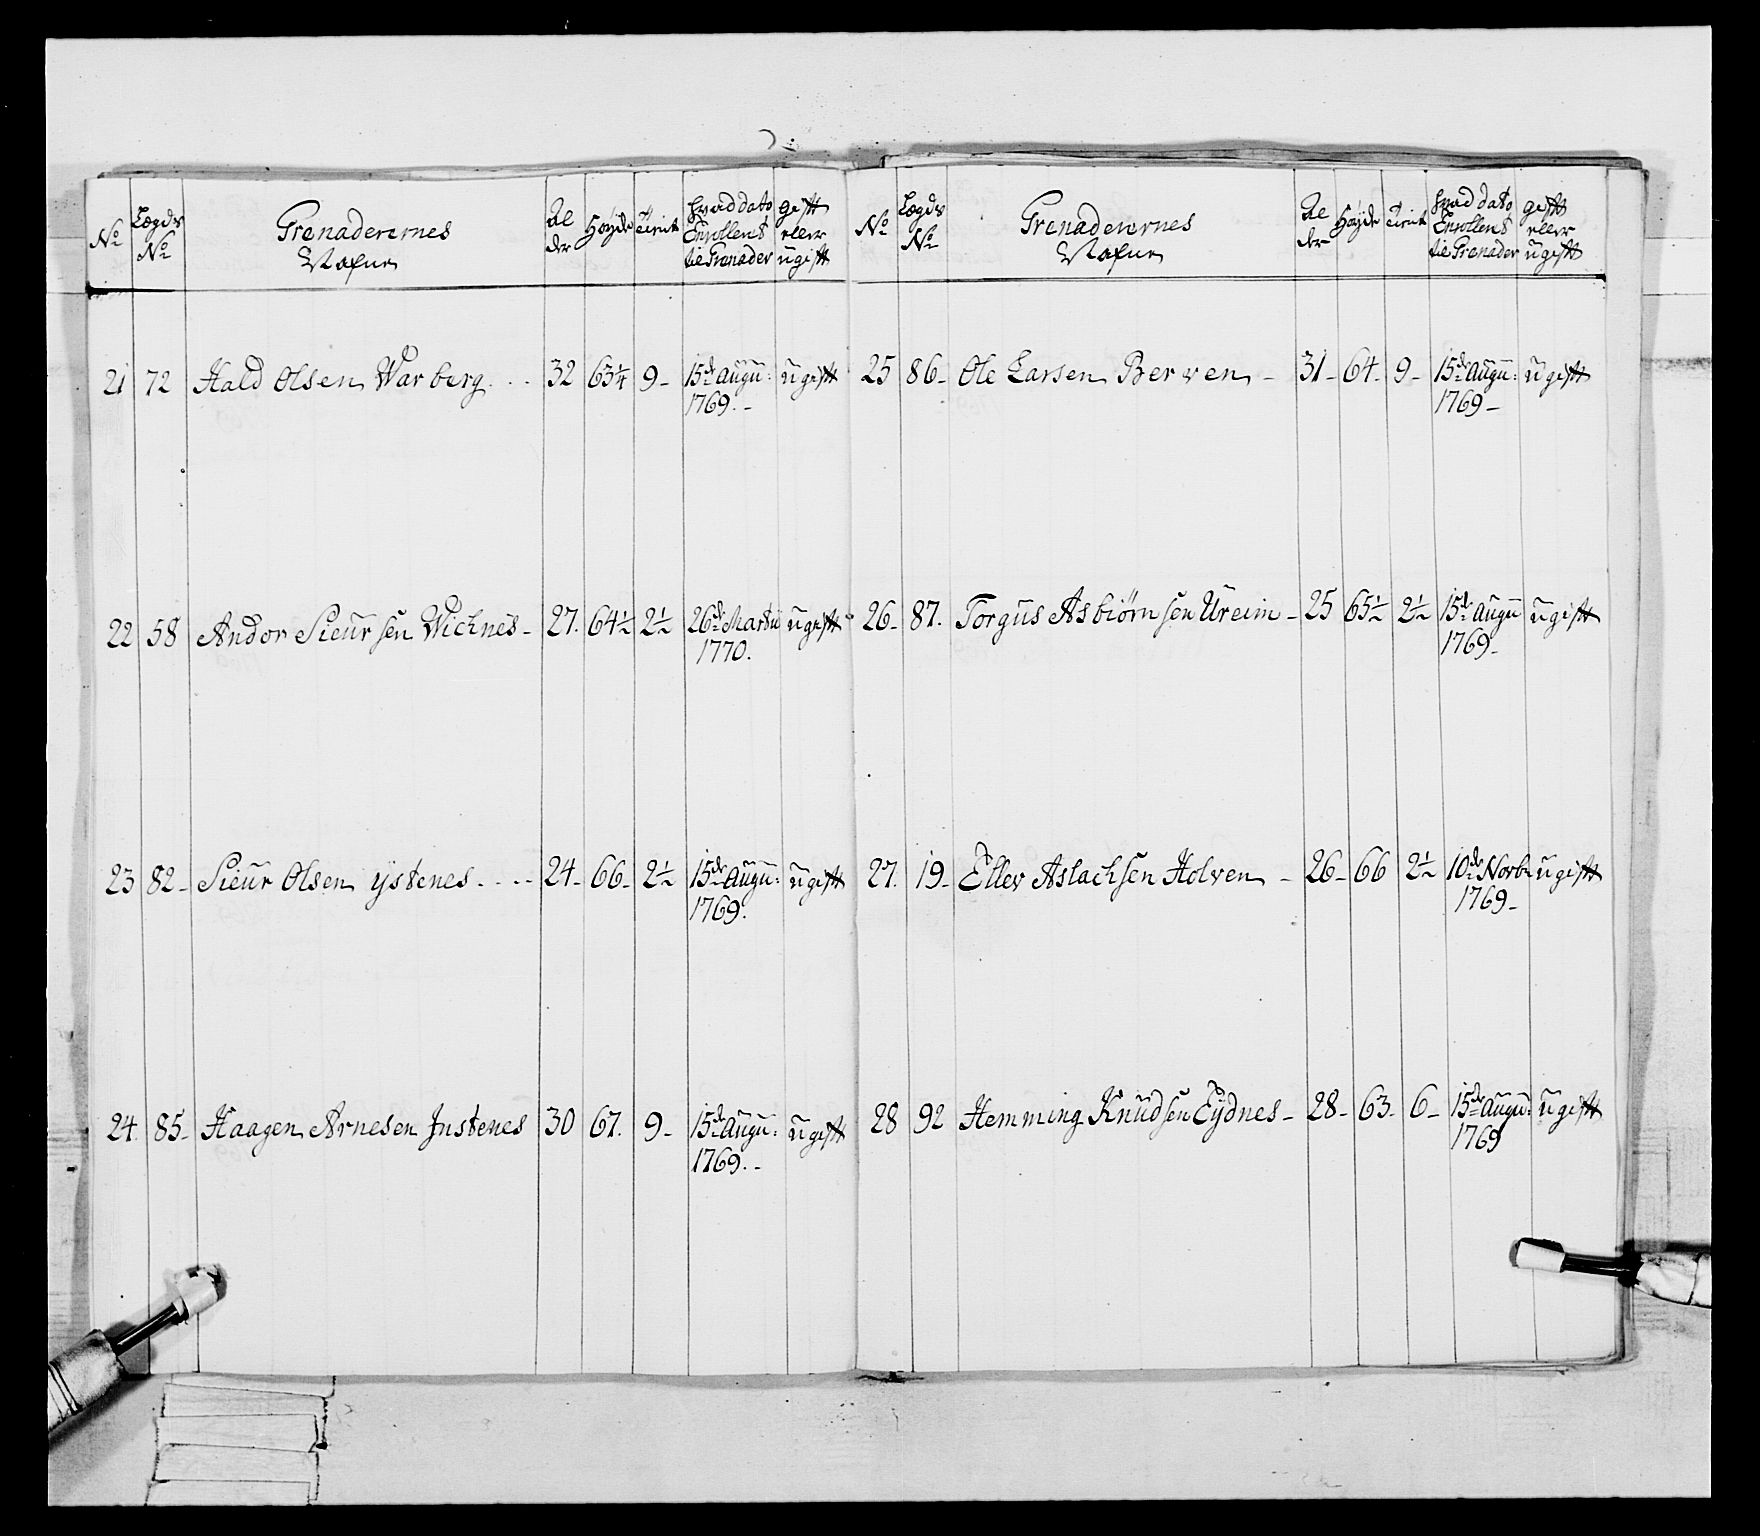 No Lægds No Grenaderernes Nafne Alder Høyde tient hvad dato Enrollert til Grenader gift eller ugift
21 72 Hald Olsen Warberg . . . 32 63¼ 9- 15de Augu: ugift
1769.-
22 58 Andor Sieursen Wichnes- 27. 64½ 2½ 26de Martii ugift
1770.
23 82- Sieur Olsen ystenes . . . . 24- 66- 2½ 15de Augu: ugift
1769.
24. 85- Haagen Arnesen Instenes 30 67. 9- 15de Augu: ugift
1769.-
No Lægds No Grenaderernes Nafne Alder Høyde tient hvad dato Enrollert til Grenader gift eller ugift
25 86- Ole Larsen Berven - 31- 64- 9- 15de Augu: ugift
1769-
26- 87. Torgus Asbiørnsen Ureim- 25 65½ 2½ 15de Augu ugift
1769-
27. 19- Ellev Aslachsen Holven - 26- 66 2½ 10de Novb. ugift
1769-
28 92 Hemming Knudsen Eydnes- 28- 63- 6- 15de Augu: ugift
1769